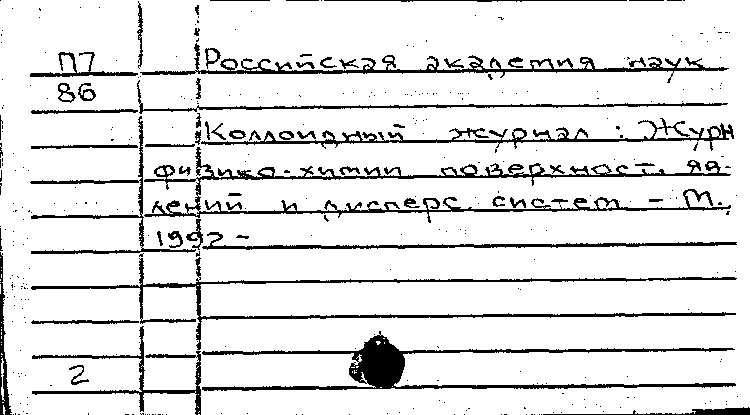 П7 Российская академия наук
86
Коллоидный журнал : Журн
физико-химии поверхност. яв-
лений и дисперс. систем - М.,
1992 -
2